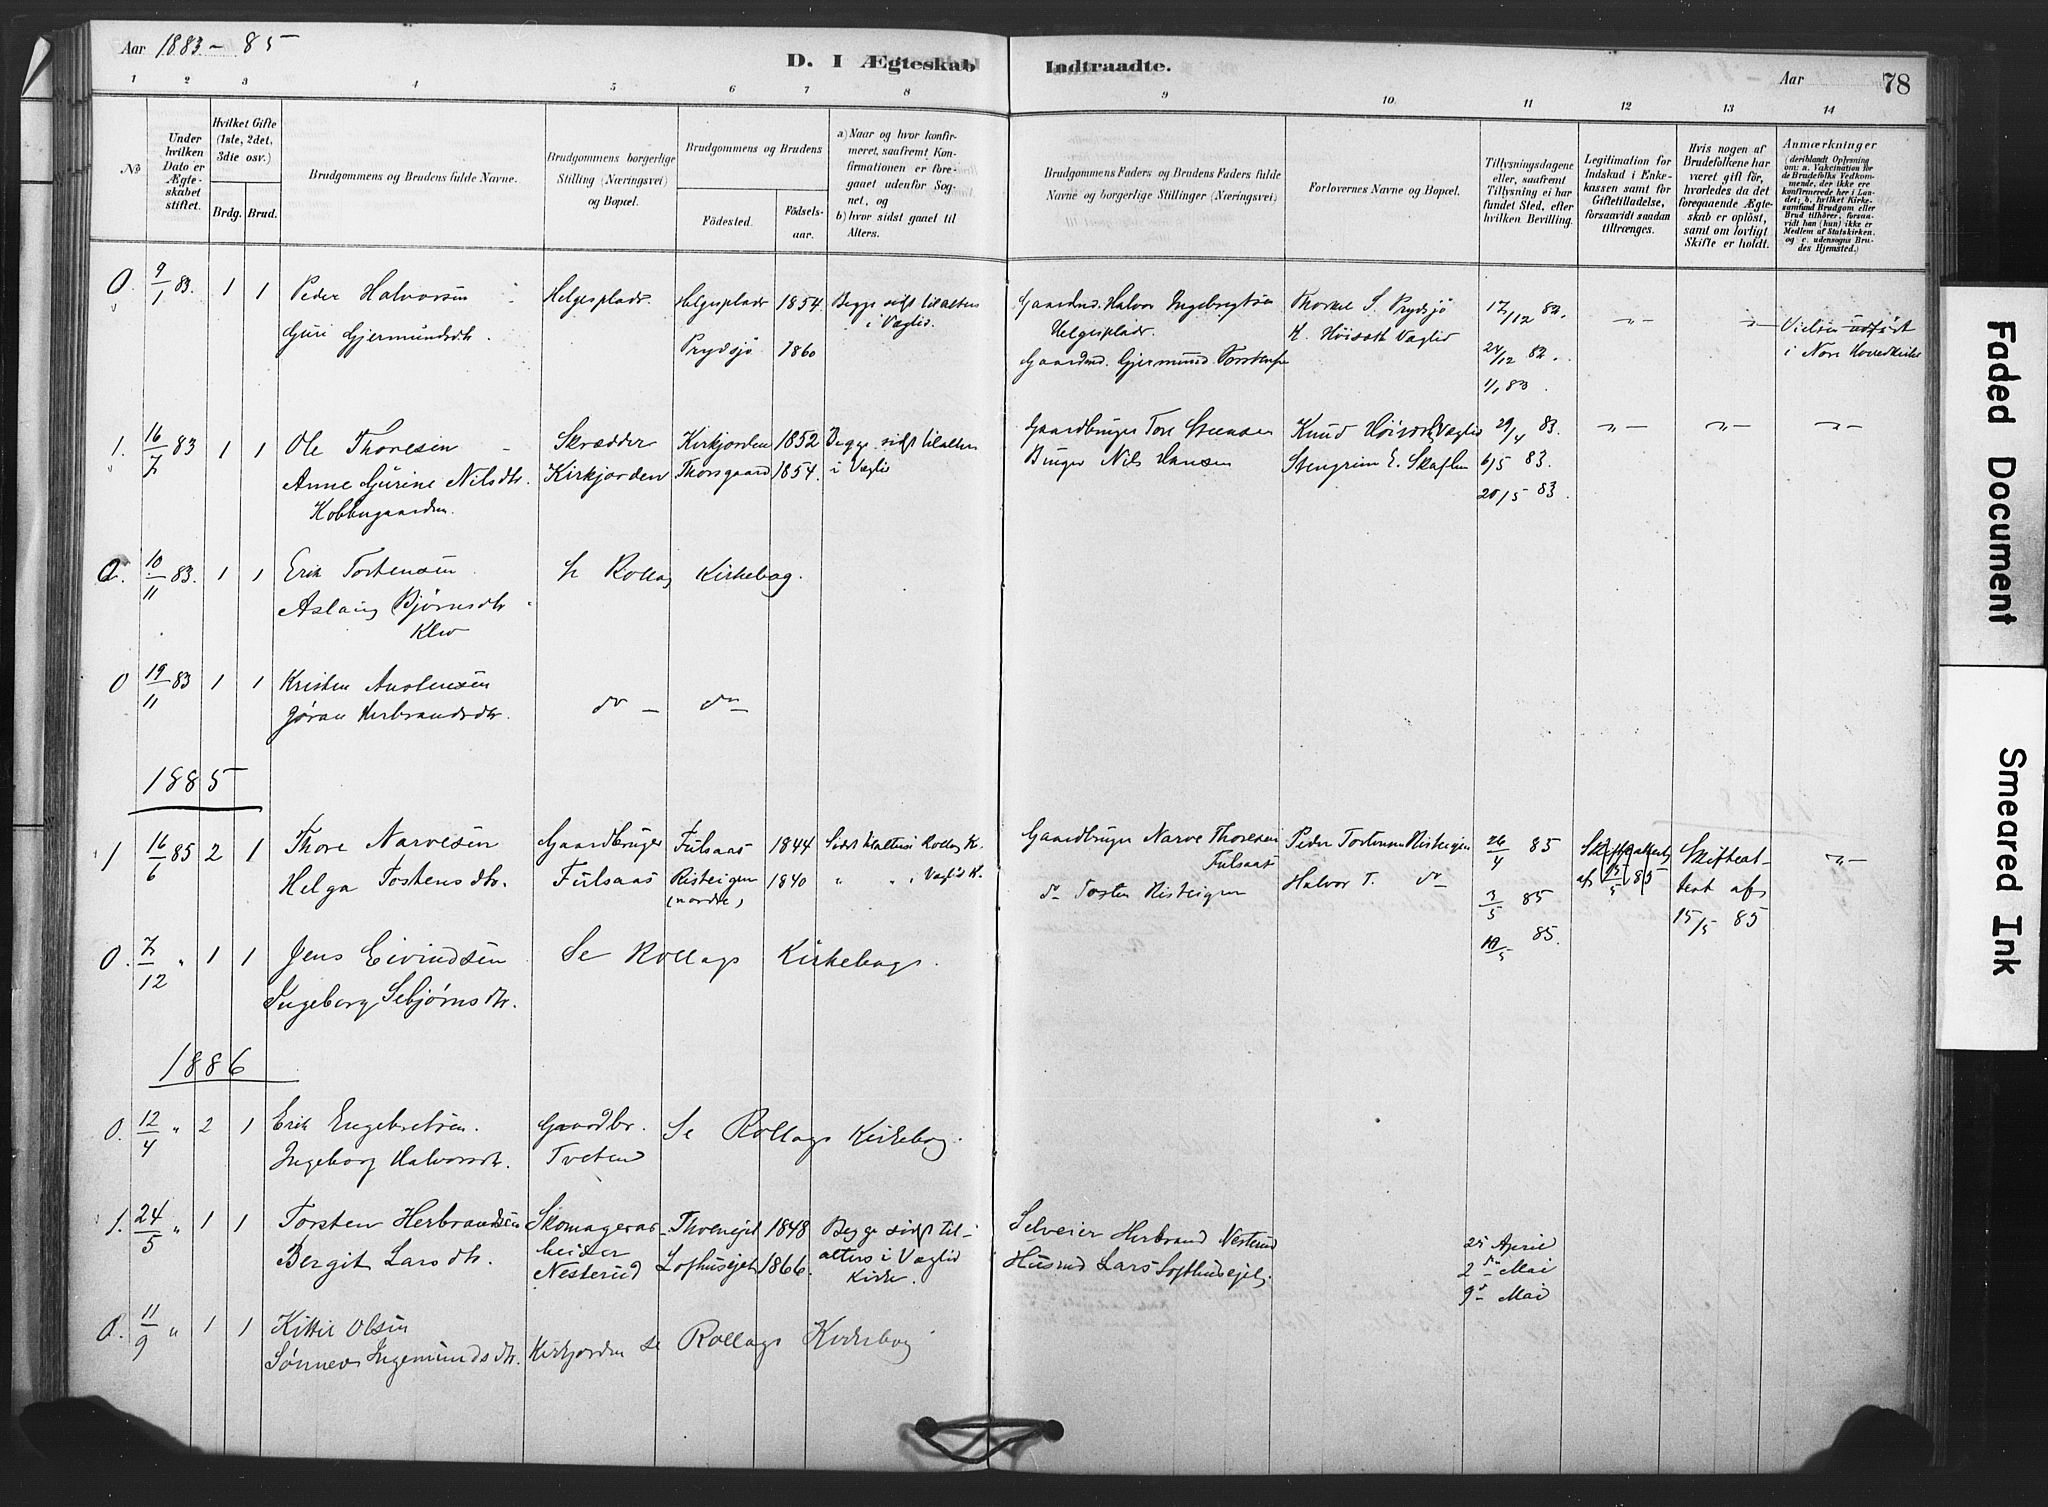 Aar 1883-85
D. I Ægteskab Indtraadte.
Aar
78
1 2 3 4 5 6 7 8 9 10. 11 12 13 14
No
Under hvilken Dato er Ægteskabet stiftet.
Hvilket Gifte (1ste, 2det, 3die osv.)
Brdg. Brud.
Brudgommens og Brudens fulde Navne.
Brudgommens borgerlige Stilling (Næringsvei) og Bopæl.
Brudgommens og Brudens
Födested. Födselsaar.
a) Naar og hvor konfirmeret, saafremt Konfirmationen er foregaaet udenfor Sognet, og
b) hvor sidst gaaet til Alters.
Brudgommens Faders og Brudens Faders fulde Navne og borgerlige Stillinger (Næringsvei)
Forlovernes Navne og Bopæl.
Tillysningsdagene eller, saafremt Tillysning ei har fundet Sted, efter hvilken Bevilling.
Legitimation for Indskud i Enkekassen samt for Giftetilladelse, forsaavidt saadan tiltrænges.
Hvis nogen af Brudefolkene har været gift før, hvorledes da det foregaaende Ægteskab er opløst, samt om lovligt Skifte er holdt.
Anmærkninger
(deriblandt Oplysning om: a. Vakcination for de Brudefolks Vedkommende, der ikke ere konfirmerede her i Landet; b. hvilket Kirkesamfund Brudgom eller Brud tilhörer, forsaavidt han (hun) ikke er Medlem af Statskirken, og c. udensogns Brudes Hjemsted.)
O. 9/1 83. 1 1 Peder Halvorsen Helgesplads. Helgesplads 1854. Begge sidst til alters Gaardmd. Halvor Ingebrigtsen Thorkel S. Prydsjö 17/12 82. -"- -"- Vielsen udført
Guri Gjermundsdtr. Prydsjö 1860 i Væglid. Helgesplads. K. Höiseth Væglid 24/12 82. i Nore Hovedkirke
Gaardmd. Gjermund Torstensen 1/1 83.
1. 16/7 83 1 1 Ole Thoresen Skrædder Kirkjorden 1852 Begge sidst til alters Gaardbruger Tore Steensen Knud Höiseth, Væglid 29/4 83. -"- -"- -"-
Anne Gurine Nilsdtr. Kirkjorden Thorsgaard 1854. i Væglid Bruger Nils Hansen Stengrim E. Skaflen 6/5 83.
Kobbergaarden. 20/5 83.
O. 10/11 83. 1 1 Erik Tostensen Se Rollag Kirkebog.
Aslaug Bjørnsdtr.
Klev
O 19/11 83 1 1 Kristen Austensen
Jøran Herbrandsdtr. do - do -
1885
1 16/6 85 2 1 Thore Narvesen Gaardbruger Fulsaas 1844 Sidst til alters i Rollag K. Gaardbruger Narve Thoresen Fulsaas Peder Tostensen Risteigen 26/4 85 Skifteattest Skifteat- -"-
Helga Tostensdtr. Fulsaas Risteigen (nordre) 1840 " " Væglid K. do Tosten Risteigen Halvor T. do 3/5 85 af 15/5 85 test af
10/5 85. 15/5 85
O. 7/12 " 1 1 Jens Eivindsen Se Rollags Kirkebog.
Ingeborg Sebjørnsdtr.
1886
O. 12/4 " 2 1 Erik Engebretsen. Gaardbr. Se Rollags Kirkebog.
Ingeborg Halvorsdtr. Tveten
1. 24/5 " 1 1 Torsten Herbrandsen Skomagerar- Thoenejet 1848 Begge sidst til- Selveier Herbrand Nesterud 25 April
Bergit Larsdtr. beider Lofthusejet 1866. alters i Væglid Husmd Lars Lofthusejet 2 d Mai
Nesterud Kirke. 9 d Mai
O. 11/9 " 1 1 Kittil Olsen
Sønnev Ingemundsdtr. Kirkjorden se Rollags Kirkebog
Faded Document
Smeared Ink